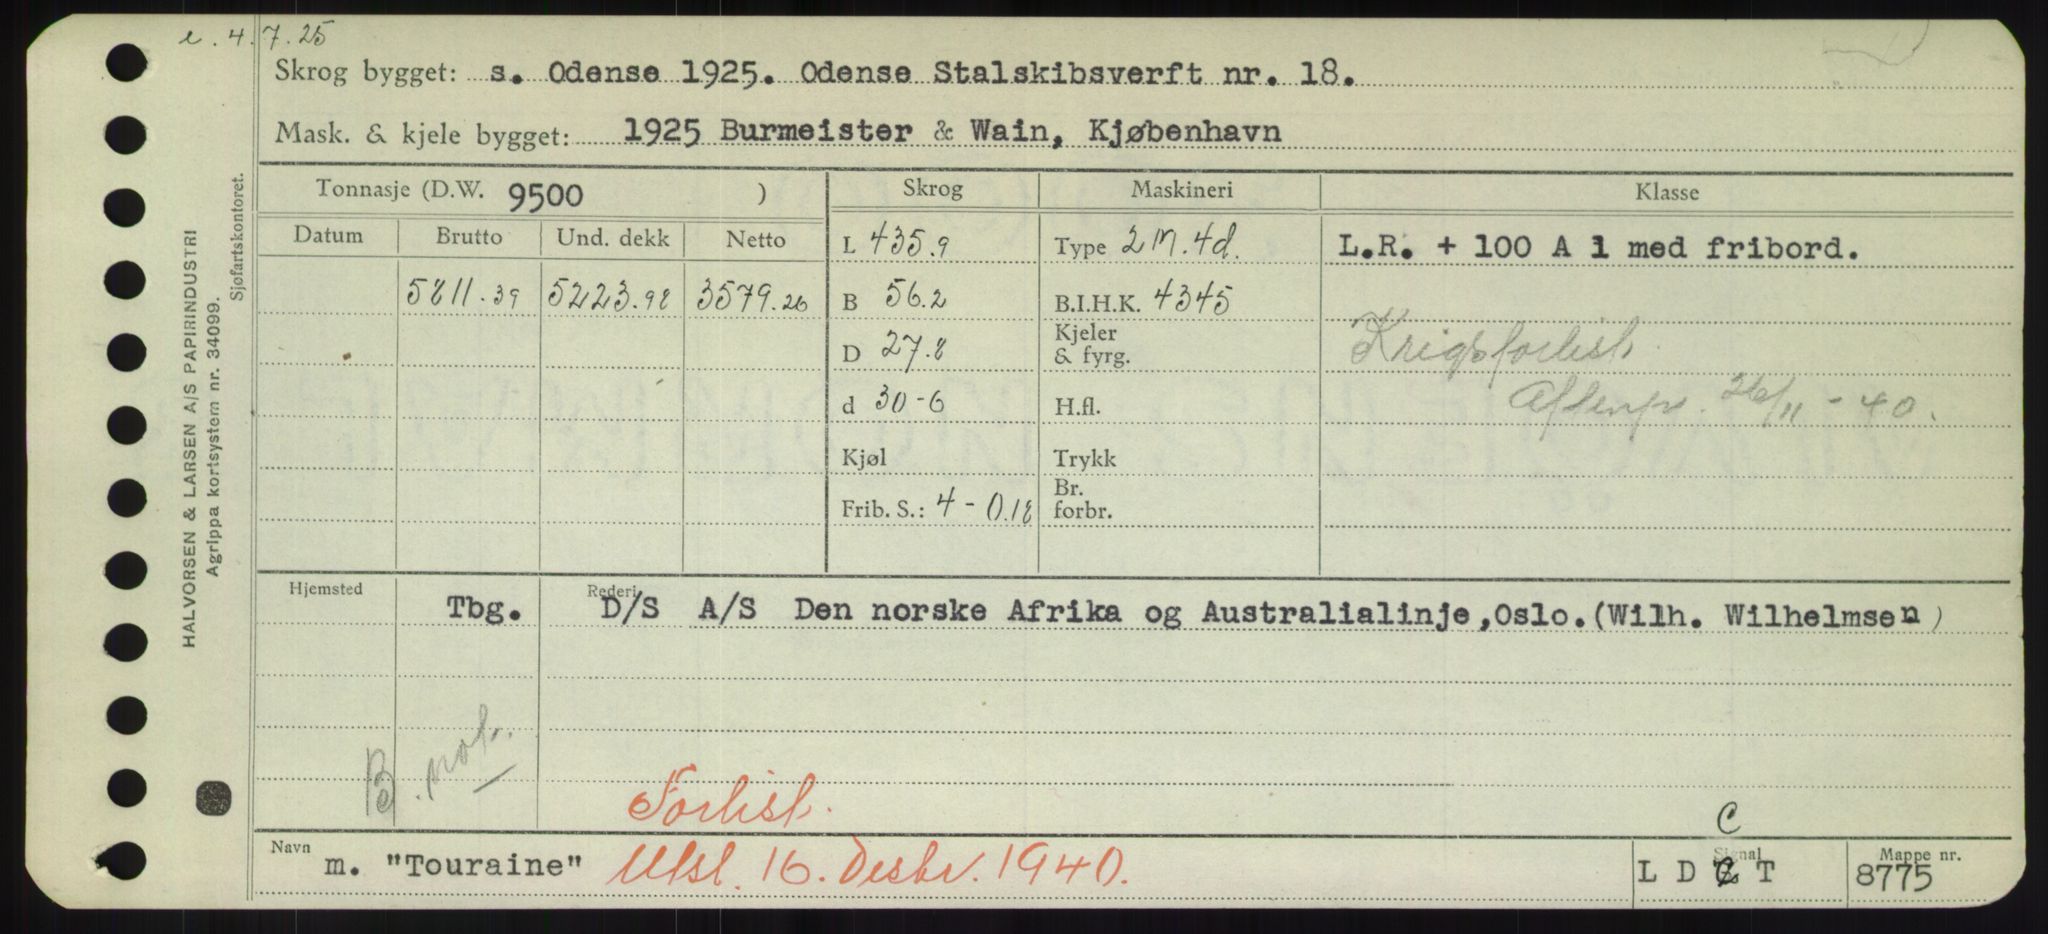 e. 4.7.25
Skrog bygget: s. Odense 1925. Odense Stalskibsverft nr. 18.
Mask. & kjele bygget: 1925 Burmeister & Wain, Kjøbenhavn
Tonnasje (D.W. 9500 ) Skrog Maskineri Klasse
Datum Brutto Und. dekk Netto
5811.39 5223.98 3579.26
L 435.9
B 56.2
D 27.8
d 30-6
Kjøl
Frib. S.: 4-0.18
Type 2M.4d.
B.I.H.K. 4345
Kjeler
& fyrg.
H.fl.
Trykk
Br.
forbr.
L.R. + 100 A 1 med fribord.
Krigsforlist.
Aftenp. 26/11-40.
Hjemsted Rederi
Tbg. D/S A/S Den norske Afrika og Australialinje,Oslo.(Wilh. Wilhelmsen)
B. not.
Forlist.
Navn m. "Touraine" Utsl. 16. Desbr. 1940.
C
Signal
L D T
Mappe nr.
8775
HALVORSEN & LARSEN A/S PAPIRINDUSTRI
Agrippa kortsystem nr. 34099.
Sjøfartskontoret.